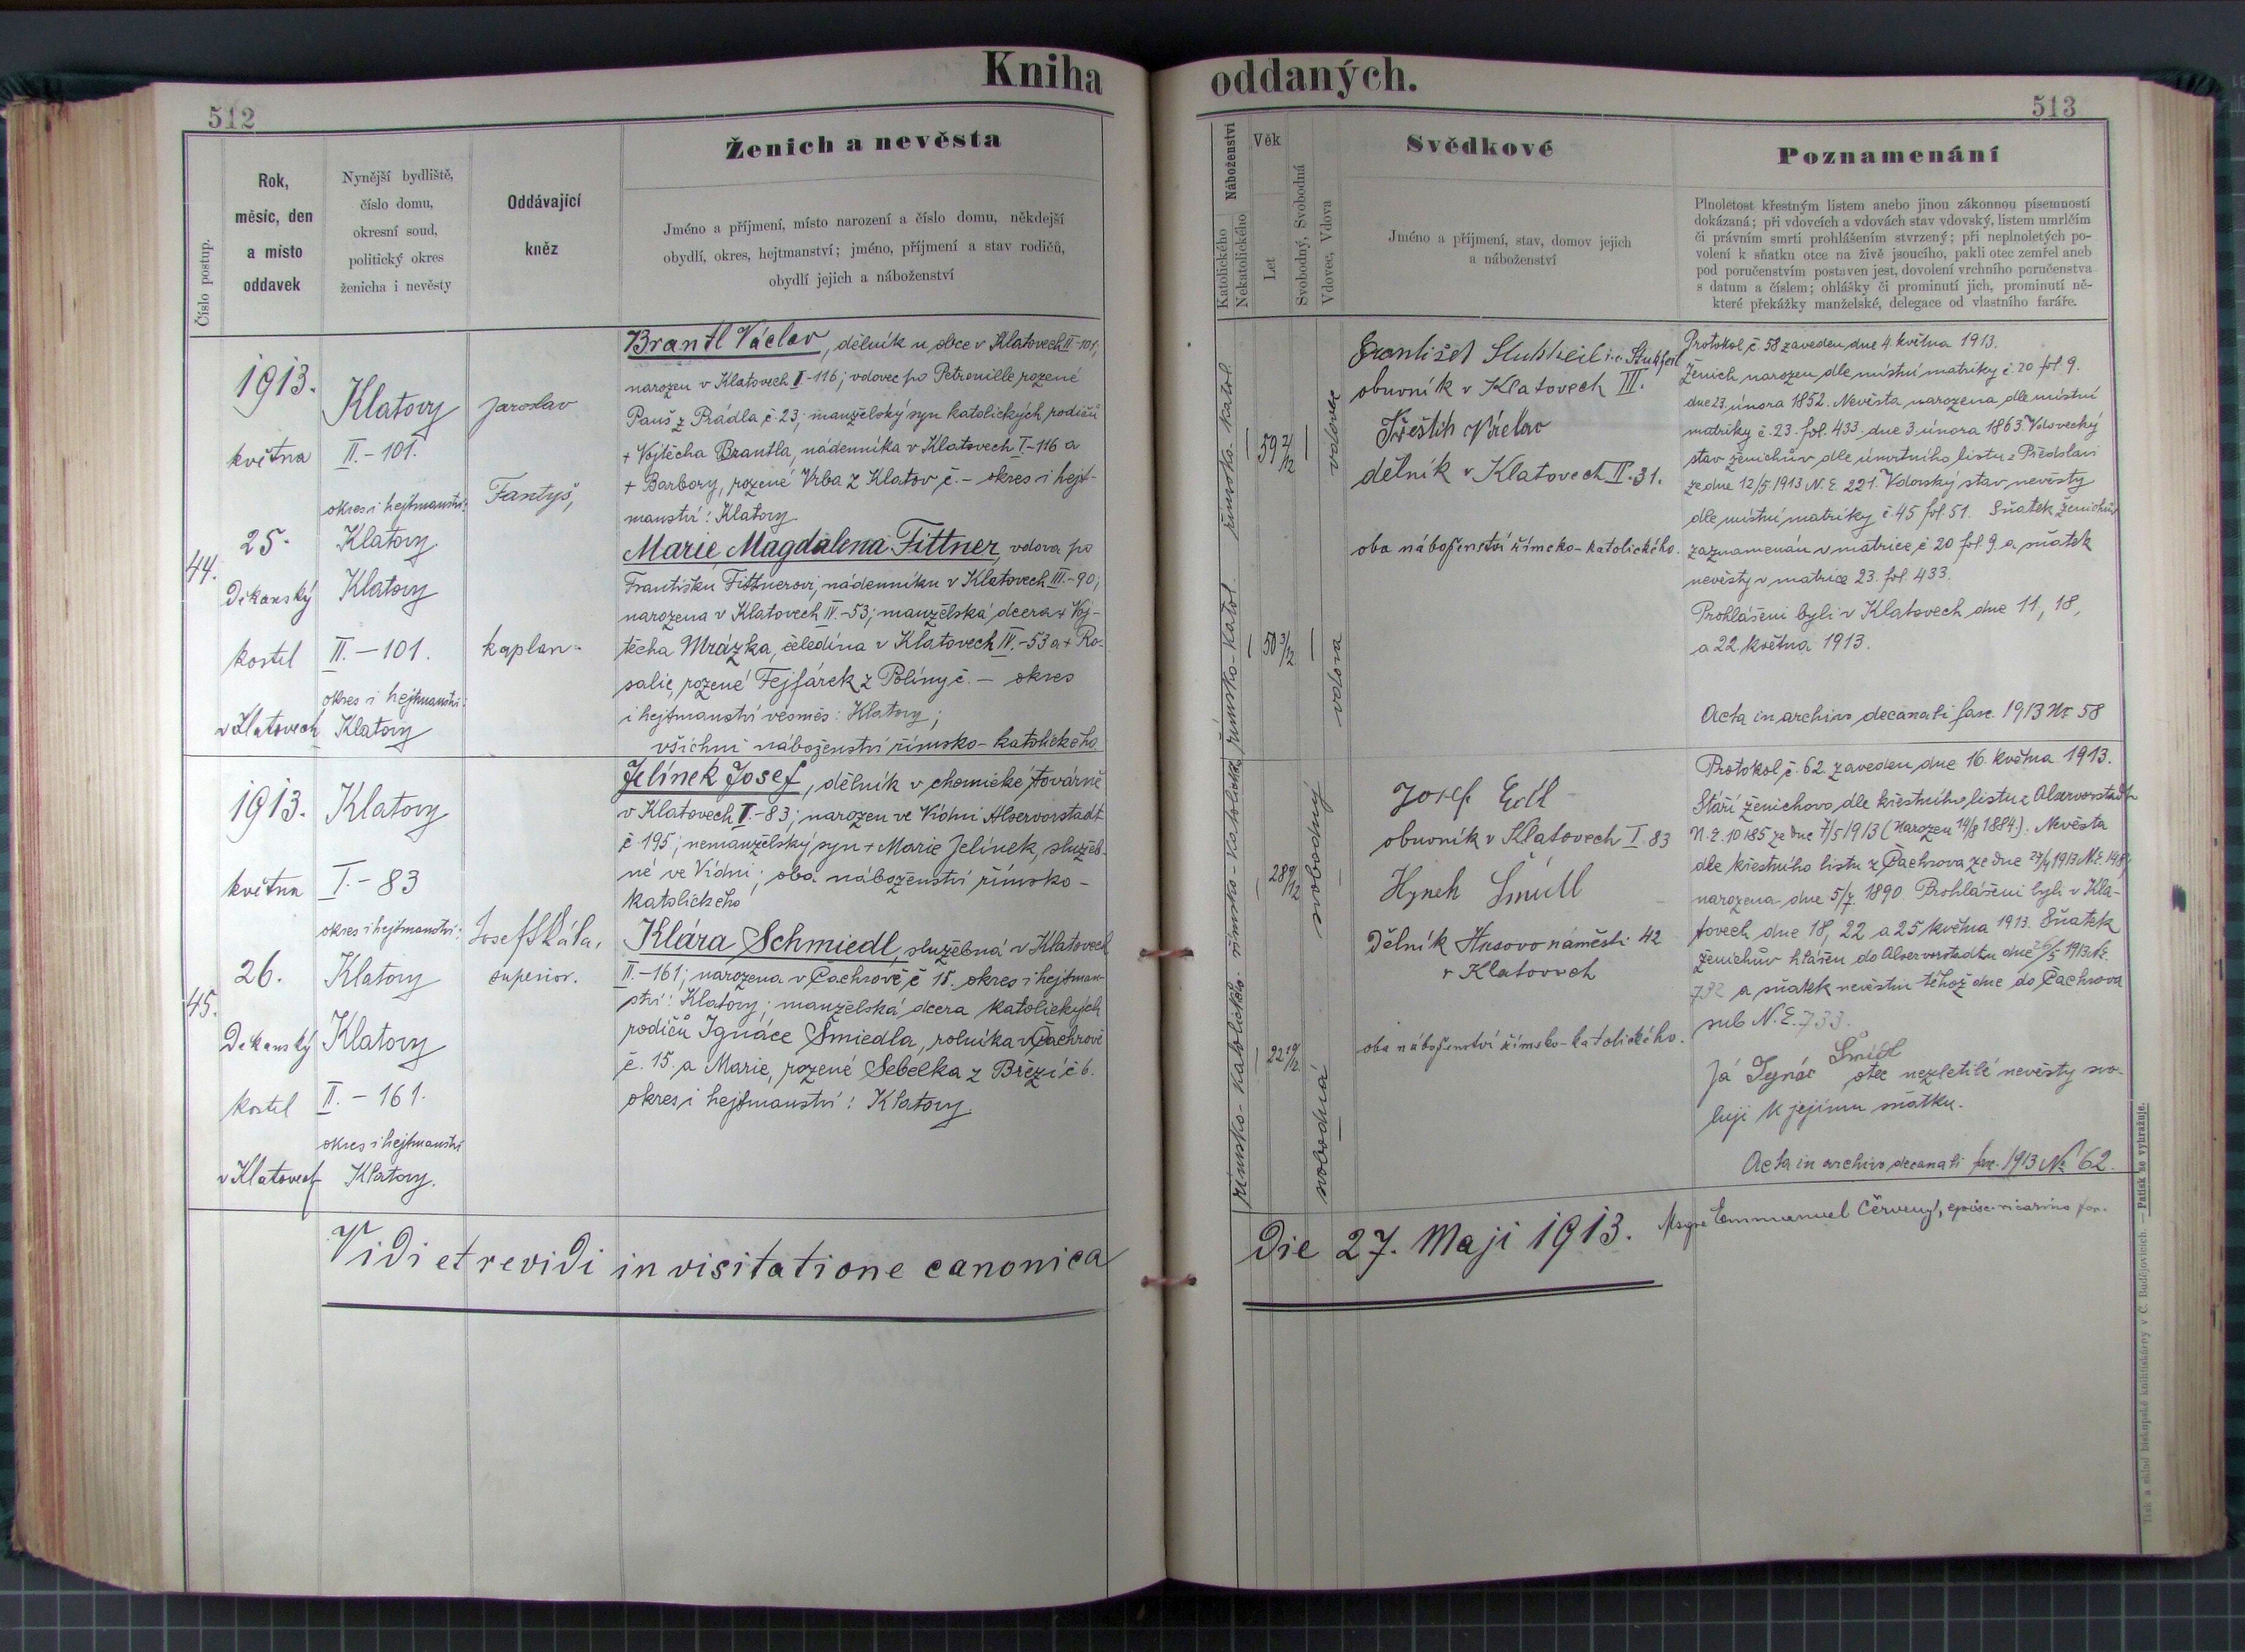 Kniha oddaných.
512
513
Číslo postup.
Rok,
měsíc, den
a místo
oddavek
Nynější bydliště,
číslo domu,
okresní soud,
politický okres
ženicha i nevěsty
Oddávající
kněz
Ženich a nevěsta
Jméno a příjmení, místo narození a číslo domu, někdejší
obydlí, okres, hejtmanství; jméno, příjmení a stav rodičů,
obydlí jejich a náboženství
Náboženství
Katolického
Nekatolického
Věk
Let
Svobodný, Svobodná
Vdovec, Vdova
Svědkové
Jméno a příjmení, stav, domov jejich
a náboženství
Poznamenání
Plnoletost křestným listem anebo jinou zákonnou písemností
dokázaná; při vdovcích a vdovách stav vdovský, listem umrlčím
či právním smrti prohlášením stvrzený; při neplnoletých po-
volení k sňatku otce na živě jsoucího, pakli otec zemřel aneb
pod poručenstvím postaven jest, dovolení vrchního poručenstva
s datum a číslem; ohlášky či prominutí jich, prominutí ně-
které překážky manželské, delegace od vlastního faráře.
44.
1913.
května
25.
Děkanský
kostel
v Klatovech
Klatovy
II.-101.
okres i hejtmanství:
Klatovy
Klatovy
II.-101.
okres i hejtmanství:
Klatovy
Jaroslav
Fantyš,
kaplan.
Brantl Václav, dělník u obce v Klatovech II-101,
narozen v Klatovech I-116; vdovec po Petronille rozené
Pauš z Prádla č. 23; manželský syn katolických rodičů
+ Vojtěcha Brantla, nádenníka v Klatovech I-116 a
+ Barbory, rozené Vrba z Klatov č. - okres i hejt-
manství: Klatovy
Marie Magdalena Fittner, vdova po
Františku Fittnerovi, nádenníku v Klatovech III.-90;
narozena v Klatovech IV.-53; manželská dcera + Voj-
těcha Mrázka, čeledína v Klatovech IV.-53 a + Ro-
salie, rozené Fejfárek z Poliny č. - okres
i hejtmanství vesměs: Klatovy;
všichni náboženství římsko-katolického
římsko-katol.
římsko-katol.
59 2/12
50 3/12
vdovec
vdova
František Stuhlheil i.e. Stuhlfeil
obuvník v Klatovech III.
Křeštín Václav
dělník v Klatovech II.31.
oba náboženství římsko-katolického.
Protokol č. 58 zaveden dne 4. května 1913.
Ženich narozen dle místní matriky č. 20 fol. 9.
dne 23. února 1852. Nevěsta narozena dle místní
matriky č. 23. fol. 433. dne 3. února 1863. Vdovecký
stav ženichův dle úmrtního listu z Předslavi
ze dne 12/5 1913 N. E. 221. Vdovský stav nevěsty
dle místní matriky č. 45 fol. 51. Sňatek ženichův
zaznamenán v matrice č 20 fol. 9. a sňatek
nevěsty v matrice 23. fol. 433.
Prohlášeni byli v Klatovech dne 11, 18,
a 22. května 1913.
Acta in archivo decanali fasc. 1913 № 58
45.
1913.
května
26.
Děkanský
kostel
v Klatovech
Klatovy
I.-83
okres i hejtmanství:
Klatovy
Klatovy
II.-161.
okres i hejtmanství
Klatovy.
Josef Skála,
superior.
Jelínek Josef, dělník v chemické továrně
v Klatovech I.-83; narozen ve Vídni Alservorstadt
č 195; nemanželský syn + Marie Jelínek, služeb-
né ve Vídni; oba náboženství římsko-
katolického
Klára Schmiedl, služebná v Klatovech
II.-161; narozena v Čachrově č 15. okres i hejtman-
ství: Klatovy; manželská dcera katolických
rodičů Ignáce Šmiedla, rolníka v Čachrově
č. 15. a Marie, rozené Sebelka z Březí č 6.
okres i hejtmanství: Klatovy.
římsko-katolické
římsko-katolické
28 9/12
22 10/12
svobodný
svobodná
Josef Edl
obuvník v Klatovech I 83
Hynek Šmidl
Dělník Husovo náměstí 42
v Klatovech
oba náboženství římsko-katolického.
Protokol č. 62. zaveden dne 16. května 1913.
Stáří ženichovo dle křestního listu z Alservorstadt
N. E. 10185 ze dne 7/5 1913 (Narozen 14/8 1884). Nevěsta
dle křestního listu z Čachrova ze dne 27/4 1913 N. E. 148,
narozena dne 5/7. 1890. Prohlášeni byli v Kla-
tovech dne 18, 22 a 25 května 1913. Sňatek
ženichův hlášen do Alservorstadtu dne 26/5 1913 N. E.
732 a sňatek nevěstin téhož dne do Čachrova
sub N. E. 733.
Já Ignác Šmidl otec nezletilé nevěsty svo-
luji k jejímu sňatku.
Acta in archivo decanali fasc. 1913 № 62.
Vidi et revidi in visitatione canonica
Die 27. Maji 1913.
Msgre Emmanuel Červený, episc. vicarius for.
Tisk a sklad biskupské knihtiskárny v Č. Budějovicích. — Patisk se vyhražuje.